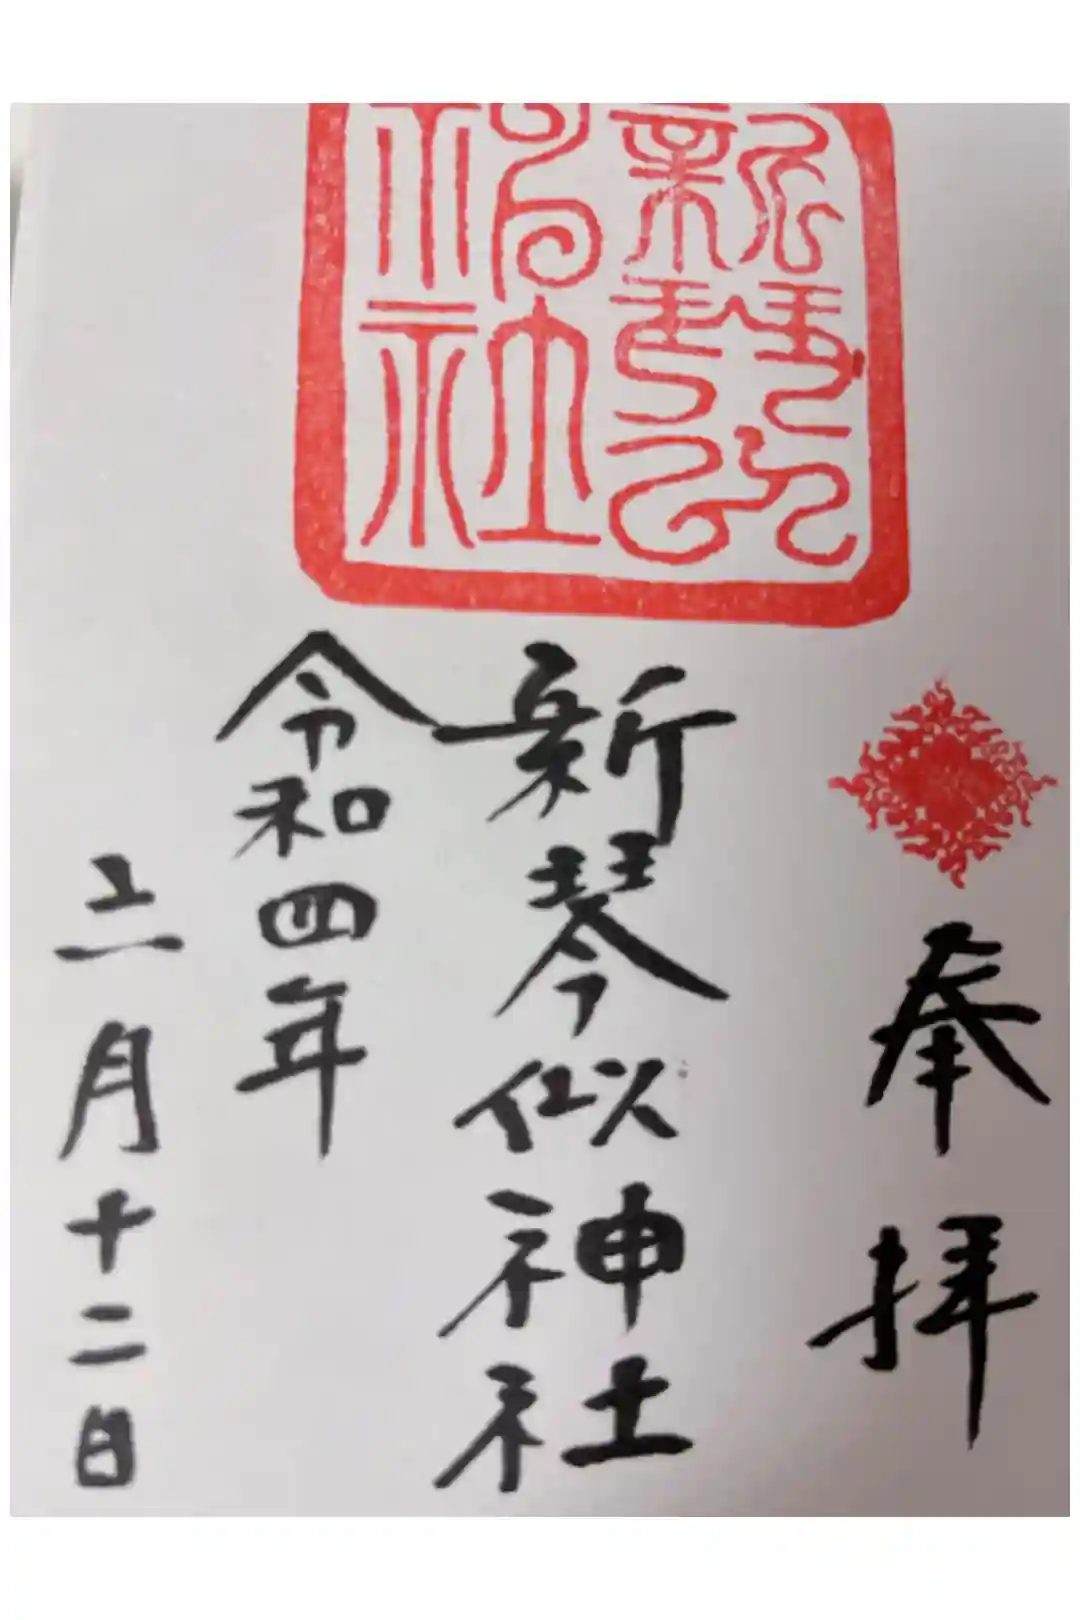 新琴似
神社
奉拝
新琴似神社
令和四年
三月十二日